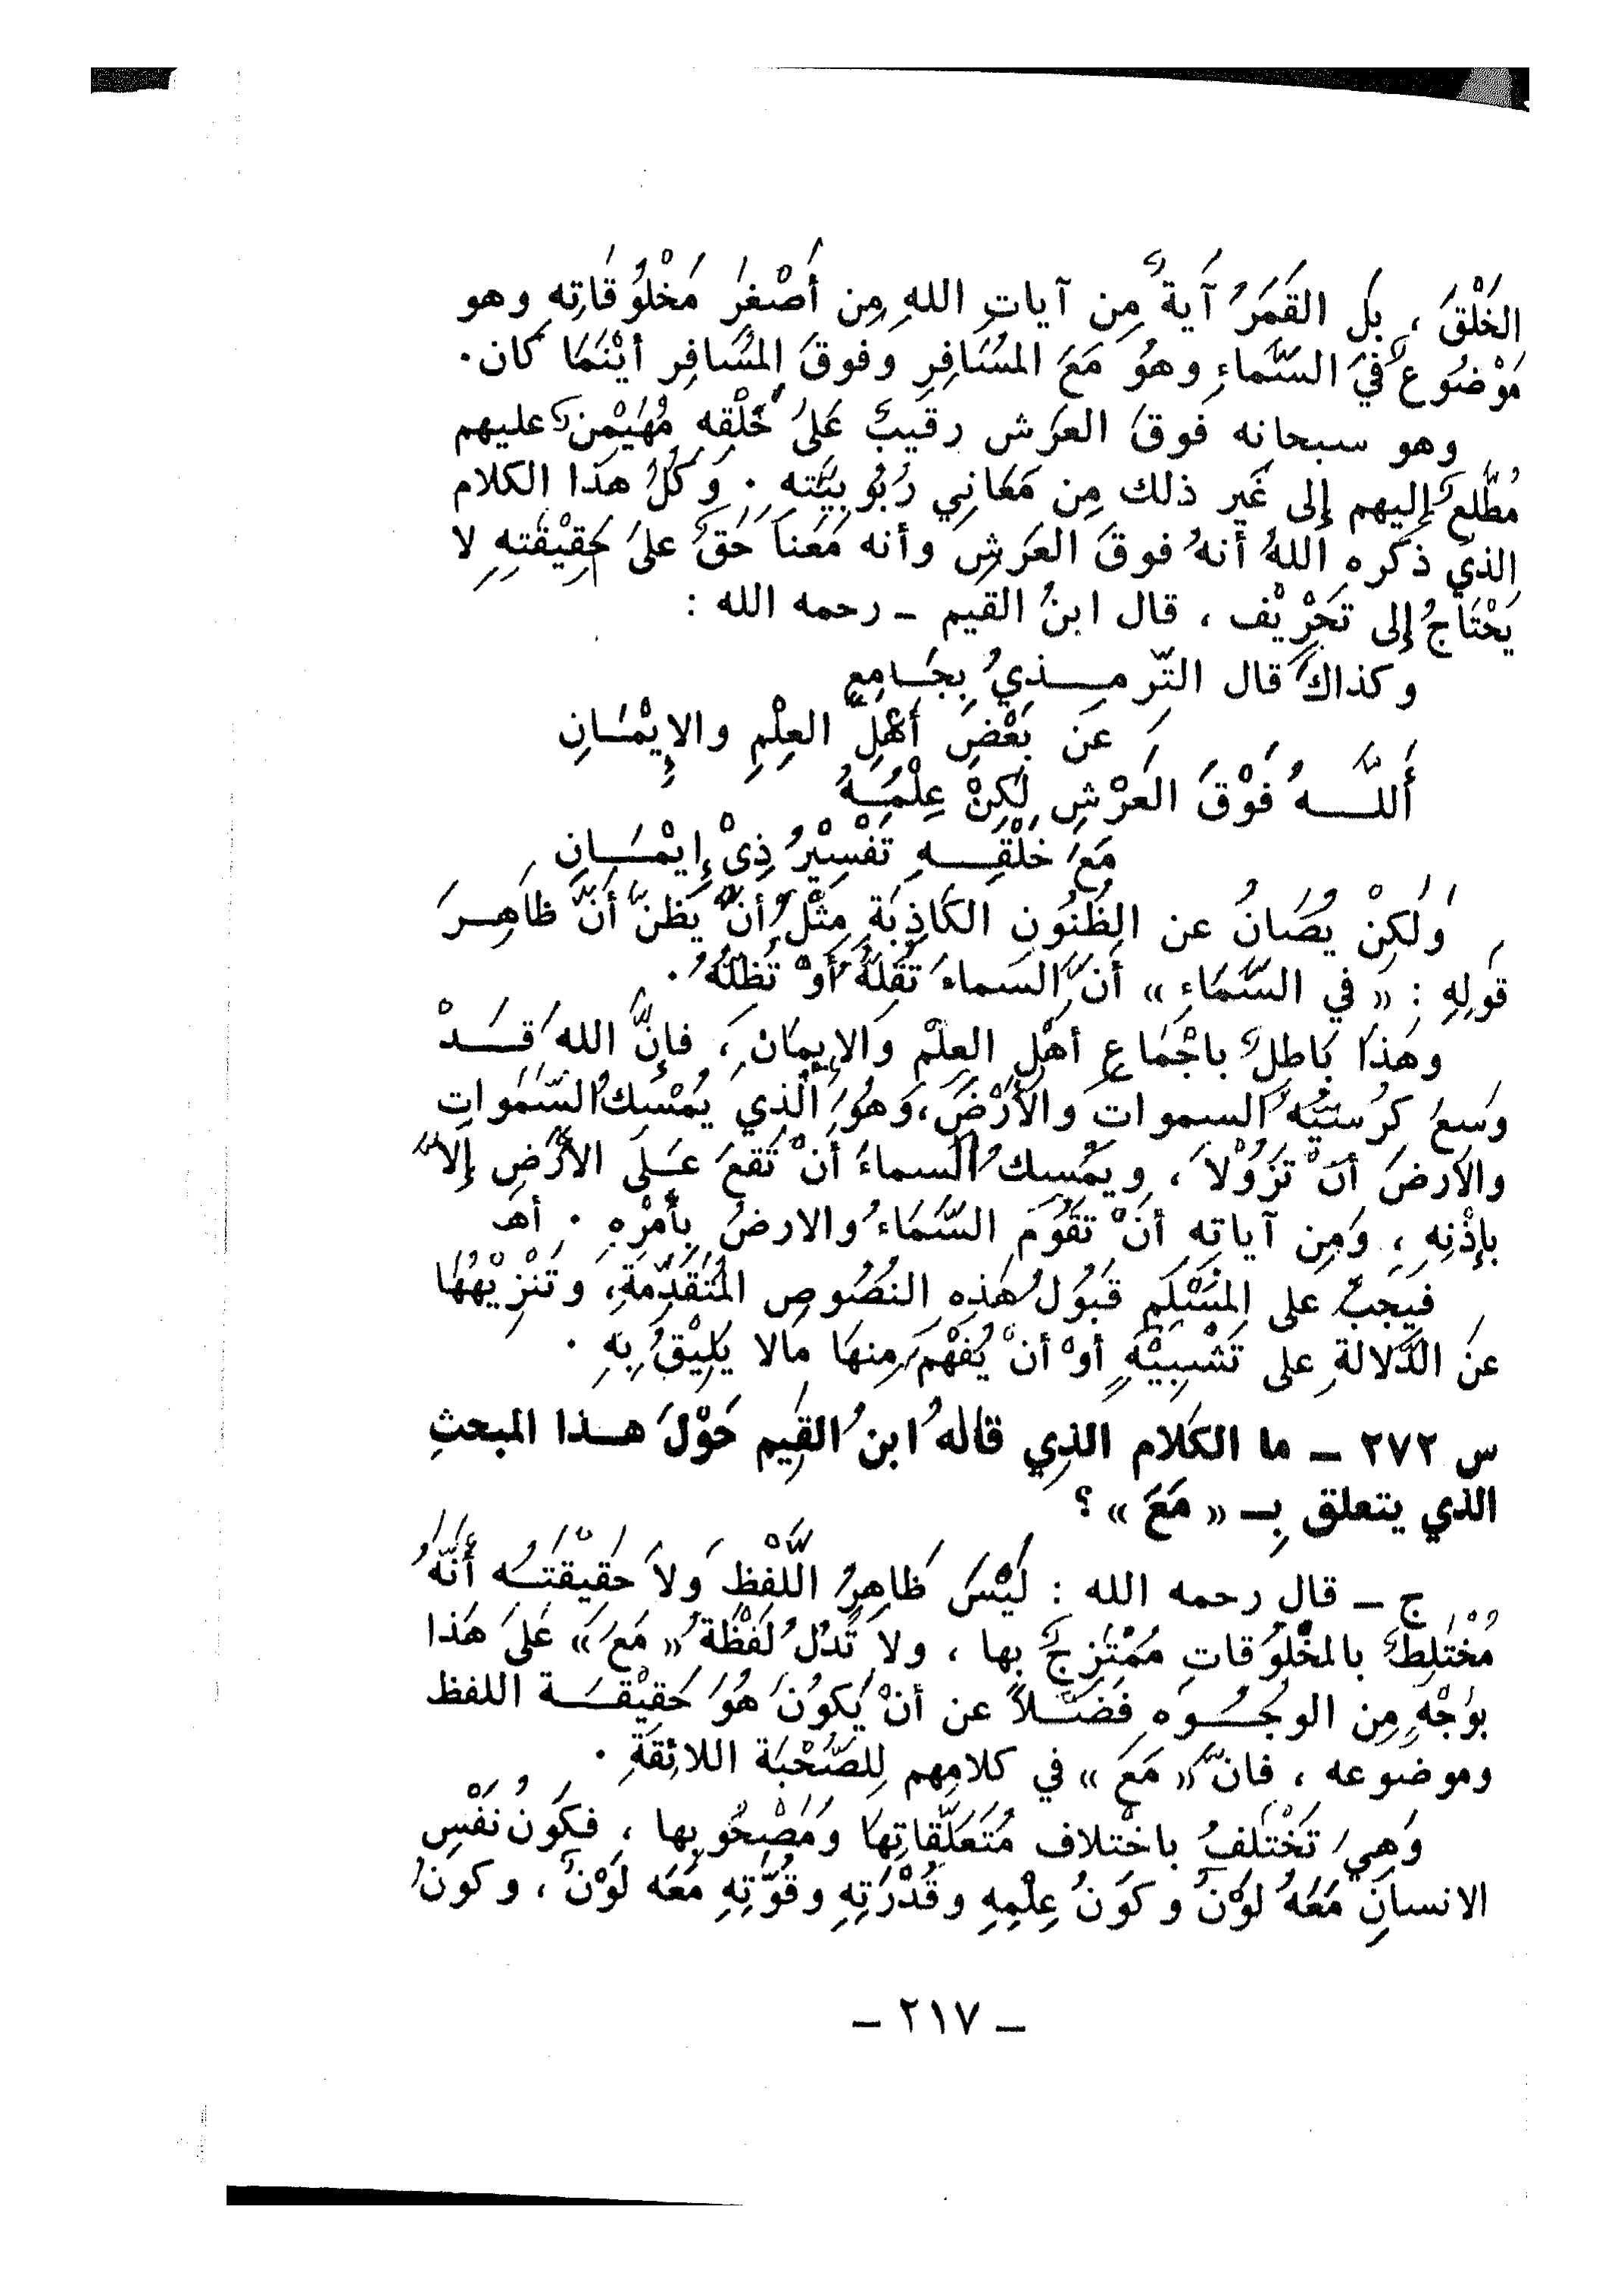 الخَلْقَ ، بَل القَمَرُ آيةٌ مِن آياتِ اللهِ مِن أَصْغَرِ مَخْلُوقَاتِه وهو
مَوْضُوعٌ فيَ السَّماءِ وهُوَ مَعَ المسَافِرِ وفوقَ المسَافِر أيْنَمَا كان.
وهو سبحانه فوقَ العَرش رقيبٌ عَلىَ خَلْقِه مُهَيْمِنٌ عليهم
مُطَّلِعٌ إليهم إلى غَيرِ ذلك مِن مَعَانِي رُبُوبِيَّتهِ . وَكُلُ هذا الكلام
الذي ذَكَره اللهُ أنهُ فوقَ العَرشِ وأنه مَعَنا حَقٌ علىَ حَقِيْقَتهِ لا
يَحْتَاجُ إلى تَحْرِيْف ، قال ابنُ القيم - رحمه الله :
وكذاكَ قال التِّرمـــذيُ بِجَــامِعٍ
عَن بَعْضِ أَهْلِ العِلْمِ والإِيْمَــانِ
أَللَّـــهُ فَوْقَ العَرْشِ لَكِنْ عِلْمُــهُ
مَعَ خَلْقِــــهِ تَفْسِيْرُ ذِيْ إيْمَـــانِ
وَلَكِنْ يُصَانُ عن الظُنُونِ الكَاذِبَةِ مِثْلُ أنْ يَظنَّ أَنَّ ظَاهِــرَ
قَولِهِ : « في السَّمَاءِ » أَنَّ السماءَ تُقِلُّهُ أَوْ تُظِلُّهُ .
وهَذَا بَاطِلٌ باجْمَاعِ أهْلِ العِلْمِ والإيمَانِ ، فإنَّ اللهَ قَــدْ
وَسِعَ كرُسِيُّه السموات والأَرْضَ، وَهُوَ الَّذِي يُمْسِكُ السَّمَواتِ
والأرضَ أنْ تَزُوْلاَ ، ويَمْسِكُ السماءَ أَنْ تَقعَ عَــلَى الأرْضِ إلاَّ
بإذْنِهِ ، وَمِن آياتِهِ أنْ تَقَوُمَ السَّمَاءُ والارضُ بِأمْرِهِ . أهـ
فَيَجِبُ على المسْلِم قَبُوْلُ هَذِهِ النصُوصِ المُتَقَدِّمَةِ، وتَنْزِيْهُهَا
عَنِ الدَّلالةِ على تَشْبِيْهٍ أوْ أنْ يُفْهَمَ مِنهَا مَالا يَلِيْقُ بِهِ .
س ٢٧٢ ـ ما الكَلام الذِي قالهُ ابنُ القِيم حَوْلَ هـــذا المبحثِ
الذي يتعلق بِـ « مَعَ » ؟
ج ـ قال رحمه الله : لَيْسَ ظَاهِرُ اللَّفْظِ وَلاَ حَقِيْقَتُــه أَنَّهُ
مُخْتَلِطٌ بالمخْلُوقاتِ مُمْتَزِجٌ بها ، ولاَ تَدُلُ لَفْظَةُ « مَعَ » عَلىَ هَذا
بوَجْهٍ مِن الوجُــوهِ فَضَـلاً عن أنْ يَكوُنَ هُوَ حَقِيْقَـــة اللفظ
وموضوعه ، فانَّ « مَعَ » في كلامِهم لِلصَّحْبَة اللائِقَةِ .
وَهِيَ تَخْتَلفُ باخْتلاف مُتَعَلَّقاتِهَا وَمَصْحُوبِها ، فكَونُ نَفْسِ
الانسانِ مَعَهُ لَوْنٌ وكَونُ عِلْمِهِ وقُدْرَتِهِ وقُوَّتِهِ مَعَه لَوْنٌ ، وكونُ
ـ ٢١٧ ـ